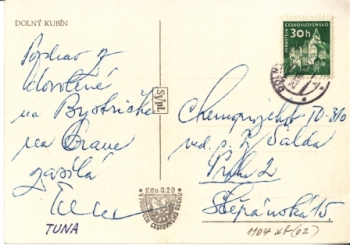 DOLNÝ KUBÍN
Pozdrav z
dovolené
na Bystričke
na Orave
zasílá
TUNA
Kčs 0,20
Chemoprojekt TO-310
ved. p. Z. Salda
Praha 2
Štěpánská 15
1104 XX (02)
ČESKOSLOVENSKO
30h